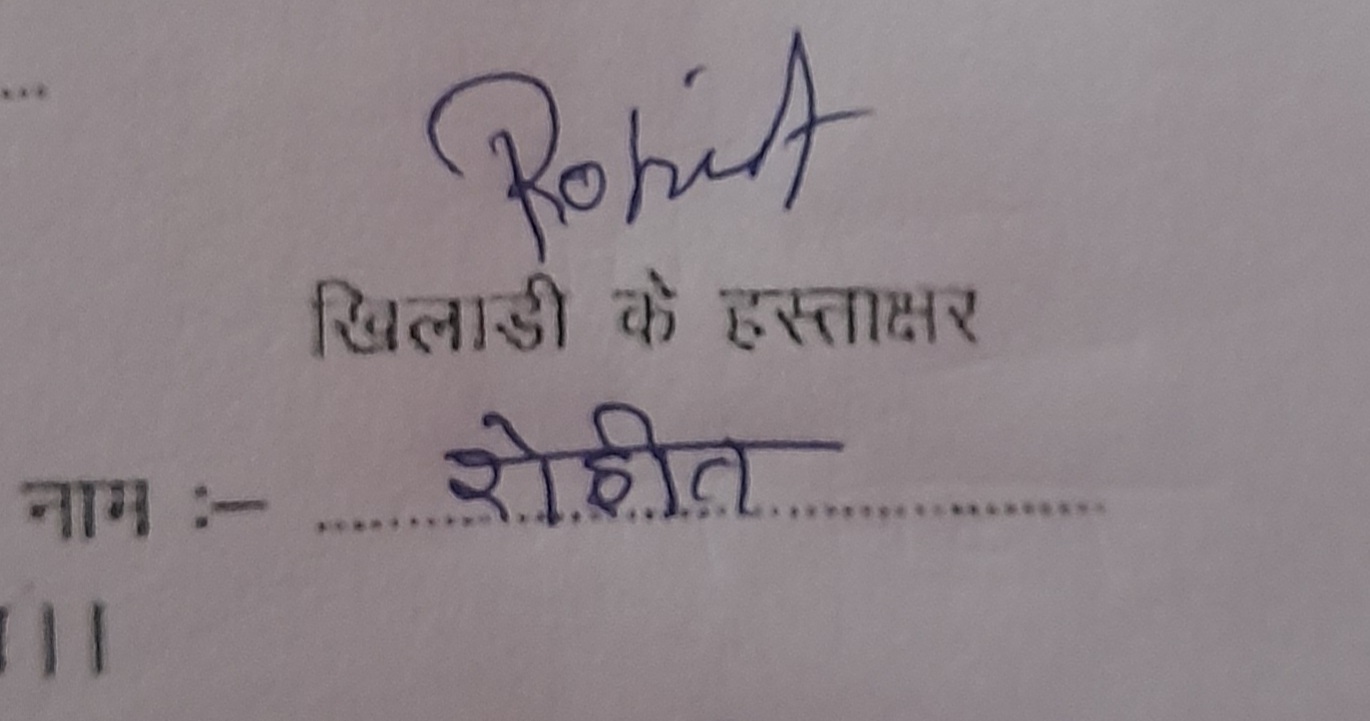 ...
Rohit
खिलाडी के हस्ताक्षर
नाम :- रोहीत
।।